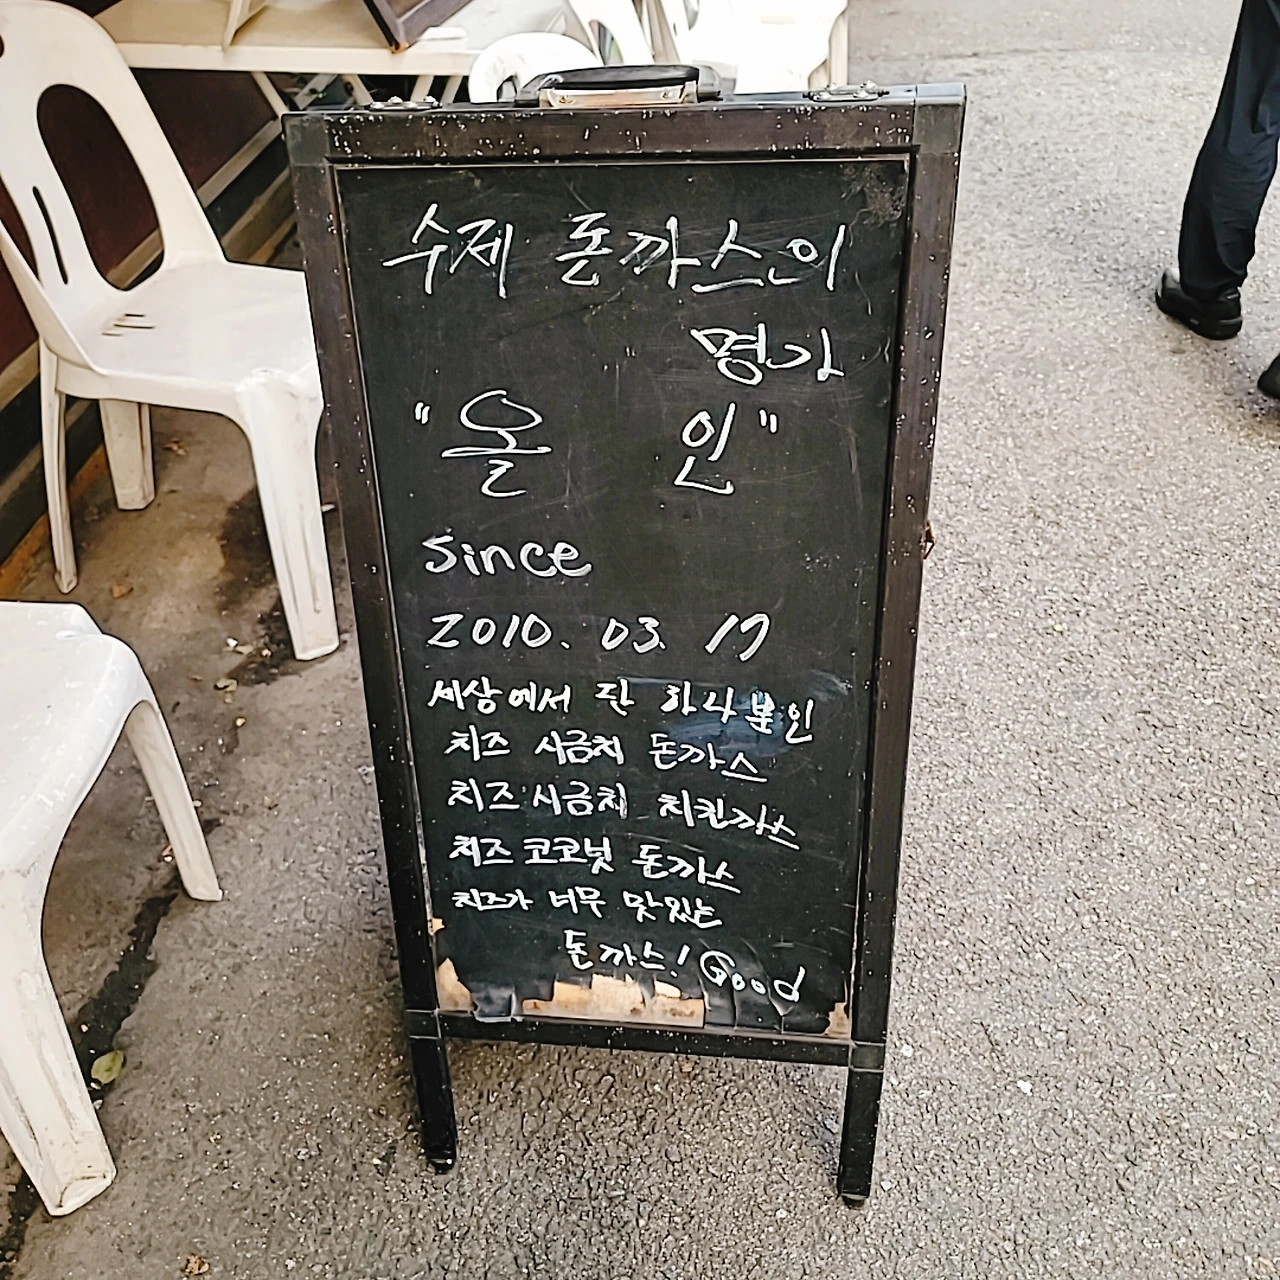 수제 돈까스의
명가
"올 인"
since
2010. 03. 17
세상에서 단 하나뿐인
치즈 시금치 돈까스
치즈 시금치 치킨까스
치즈 코코넛 돈까스
치즈가 너무 맛있는
돈까스! Good